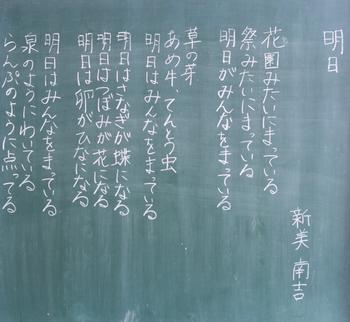 明日
新美 南吉
花園みたいにまっている
祭みたいにまっている
明日がみんなをまっている
草の芽
あめ牛、てんとう虫
明日はみんなをまっている
明日はさなぎが蝶になる
明日はつぼみが花になる
明日は卵がひなになる
明日はみんなをまっている
泉のようにわいている
らんぷのように点ってる